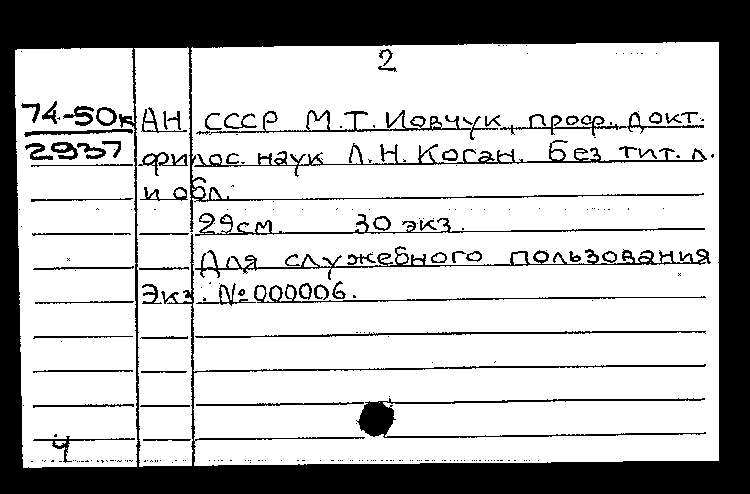 2
74-50к АН СССР М.Т. Иовчук, проф., докт.
2937 филос. наук Л.Н. Коган. Без тит. л.
и обл.
29см. 30 экз.
Для служебного пользования
Экз. №000006.
4